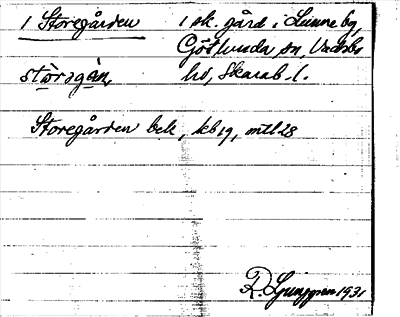 1 Storegården 1 sk. gård i Lunne by,
Götlunda sn, Vadsbo
stör̥gán, hd, Skarab. l.
Storegården bek, kb 19, mtl 28
R. Ljunggren 1931